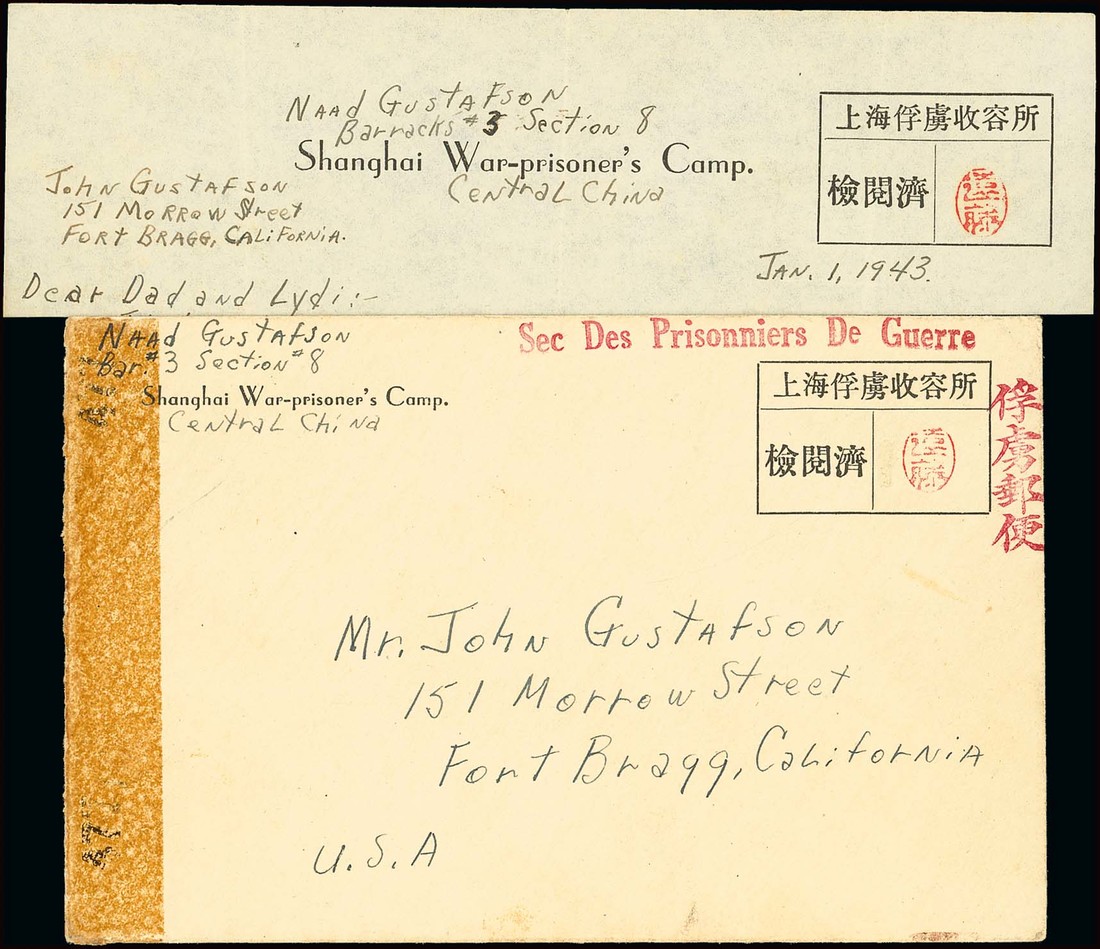 Naad Gustafson
Barracks #3 Section 8
Shanghai War-prisoner's Camp.
Central China
上海俘虜收容所
檢閱濟
John Gustafson
151 Morrow Street
Fort Bragg, California.
Jan. 1, 1943.
Dear Dad and Lydi:-
Naad Gustafson
Bar. #3 Section #8
Shanghai War-prisoner's Camp.
Central China
Sec Des Prisonniers De Guerre
上海俘虜收容所
檢閱濟
俘虜郵便
Mr. John Gustafson
151 Morrow Street
Fort Bragg, California
U.S.A